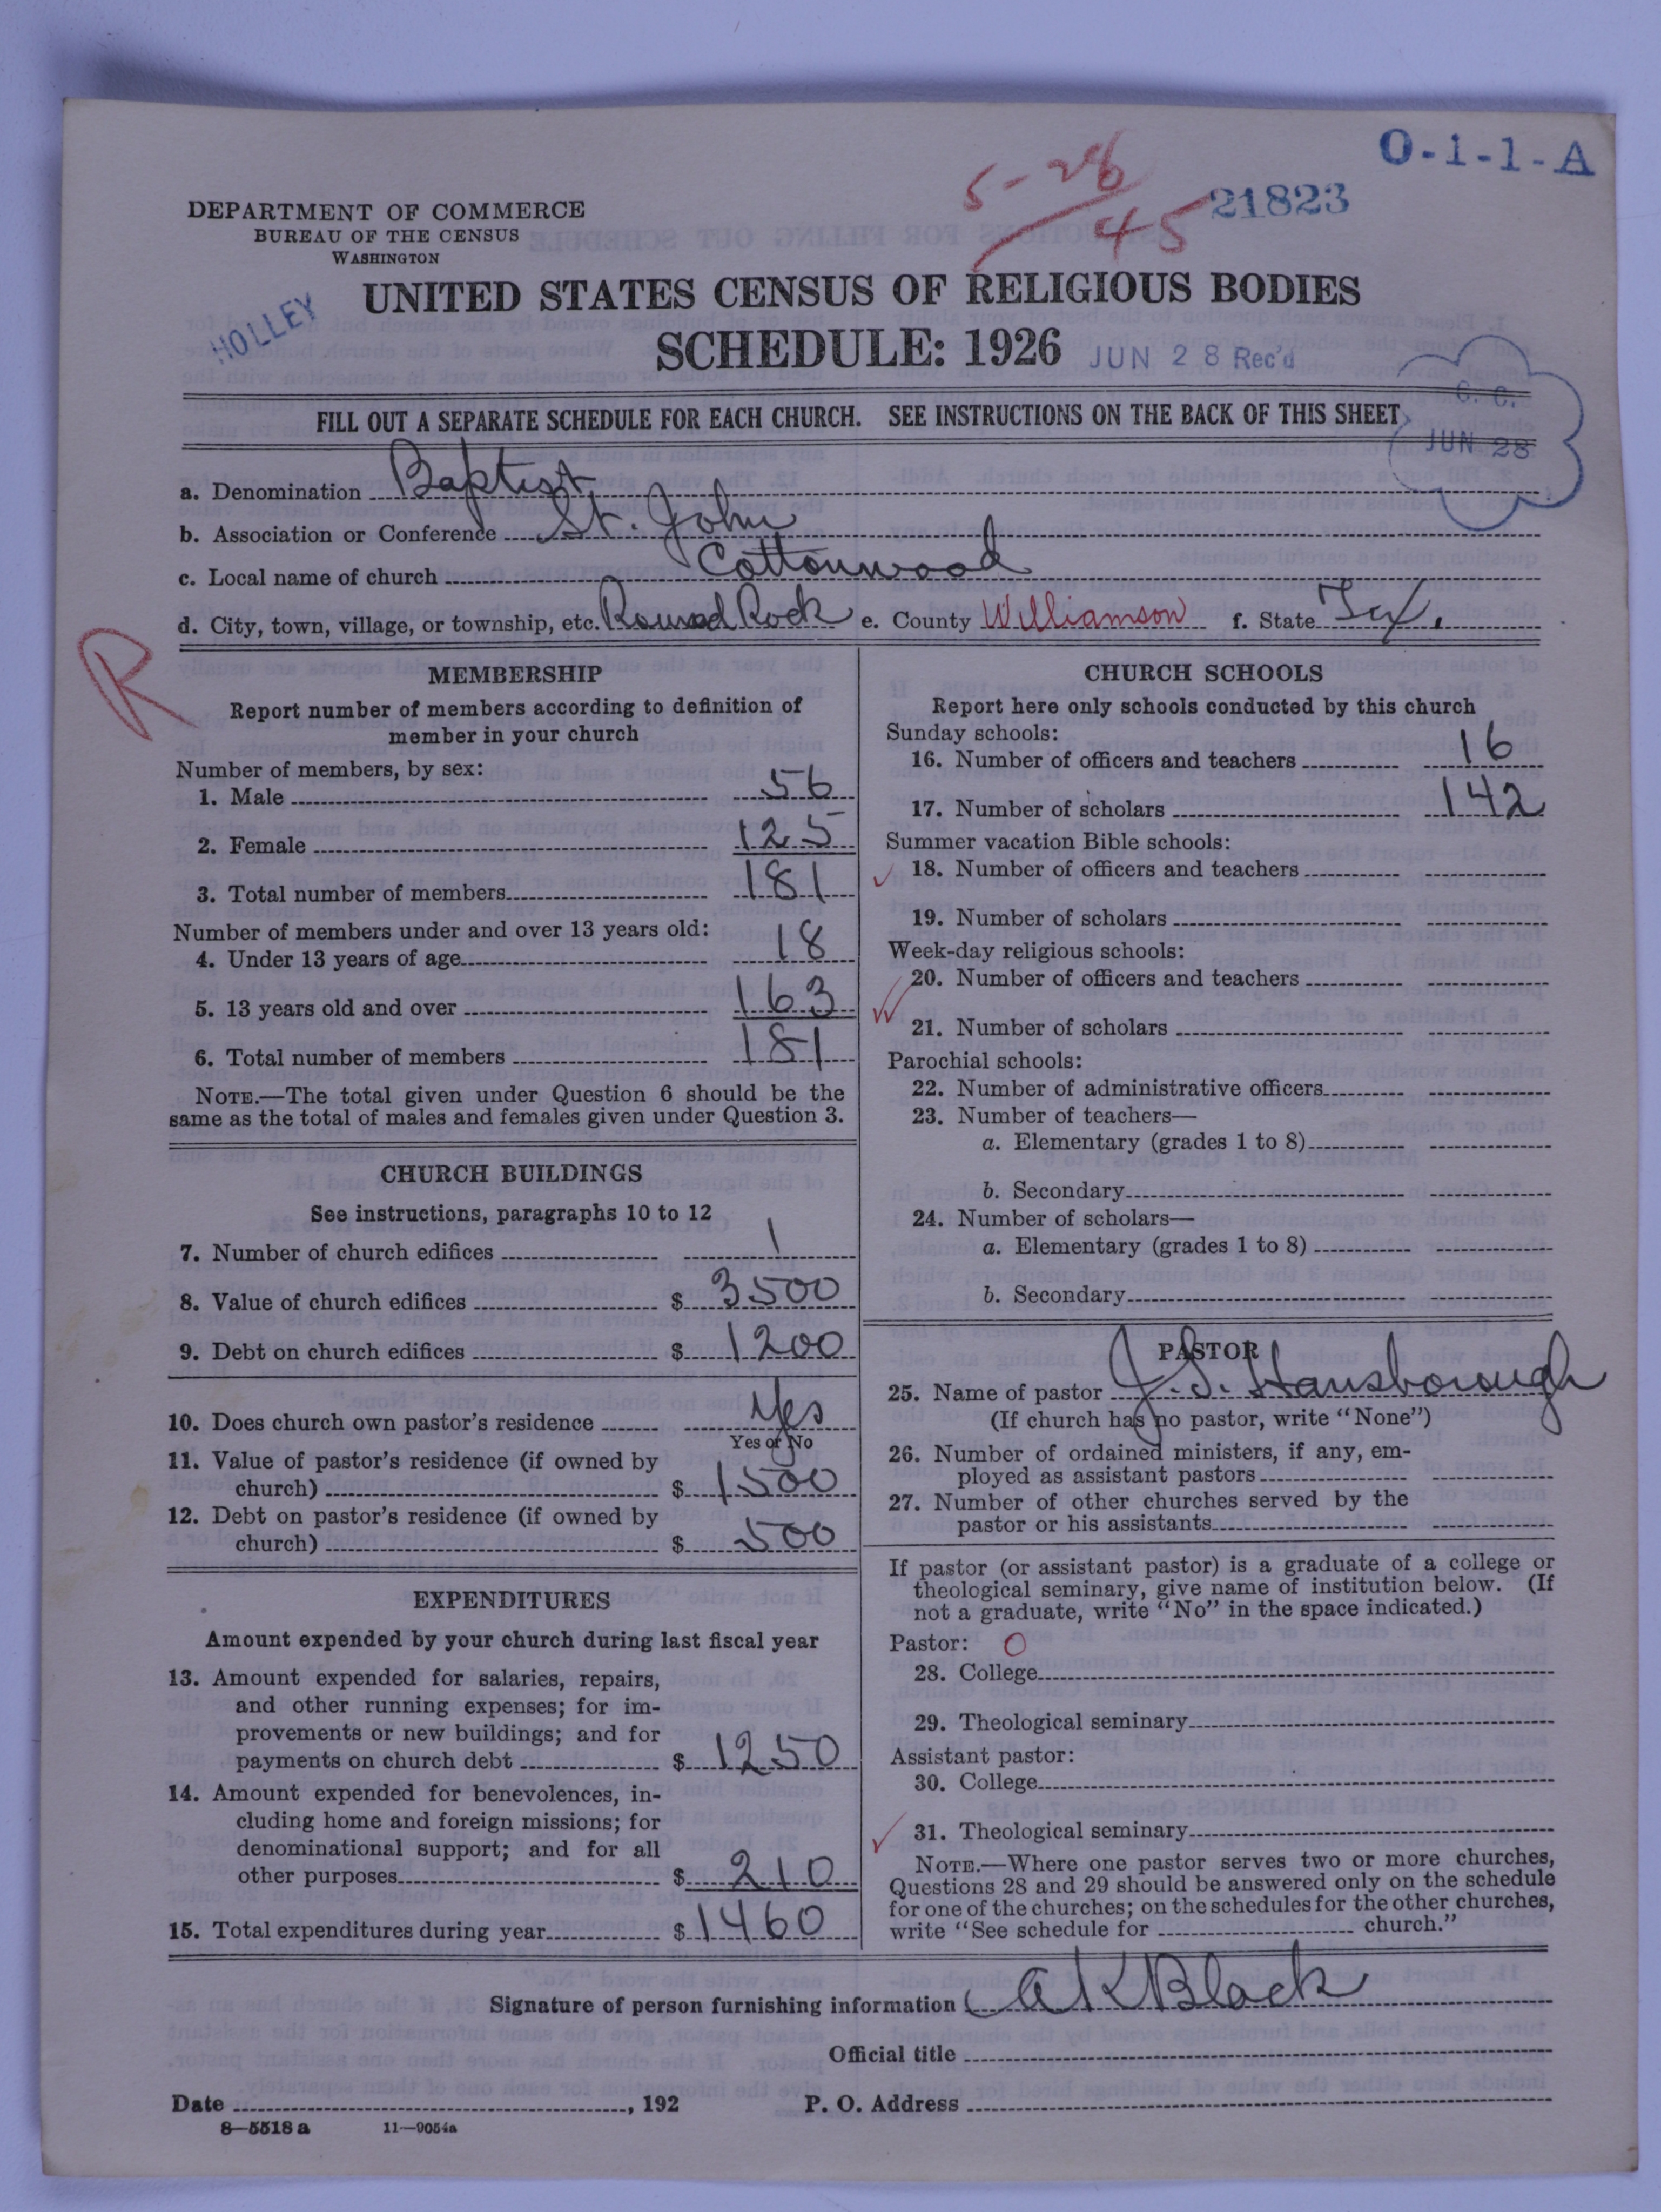 O-1-1-A
5-28
45
21823
DEPARTMENT OF COMMERCE
BUREAU OF THE CENSUS
WASHINGTON
UNITED STATES CENSUS OF RELIGIOUS BODIES
HOLLEY
SCHEDULE: 1926 JUN 28 Rec'd
C. C.
JUN 28
FILL OUT A SEPARATE SCHEDULE FOR EACH CHURCH. SEE INSTRUCTIONS ON THE BACK OF THIS SHEET
a. Denomination Baptist
b. Association or Conference St. John
c. Local name of church Cottonwood
d. City, town, village, or township, etc. Round Rock e. County Williamson f. State Tex.
R
MEMBERSHIP
Report number of members according to definition of
member in your church
Number of members, by sex:
1. Male 56
2. Female 125
3. Total number of members 181
Number of members under and over 13 years old:
4. Under 13 years of age 18
5. 13 years old and over 163
6. Total number of members 181
NOTE.—The total given under Question 6 should be the
same as the total of males and females given under Question 3.
CHURCH BUILDINGS
See instructions, paragraphs 10 to 12
7. Number of church edifices 1
8. Value of church edifices $ 3500
9. Debt on church edifices $ 1200
10. Does church own pastor's residence Yes
Yes or No
11. Value of pastor's residence (if owned by
church) $ 1500
12. Debt on pastor's residence (if owned by
church) $ 500
EXPENDITURES
Amount expended by your church during last fiscal year
13. Amount expended for salaries, repairs,
and other running expenses; for im-
provements or new buildings; and for
payments on church debt $ 1250
14. Amount expended for benevolences, in-
cluding home and foreign missions; for
denominational support; and for all
other purposes $ 210
15. Total expenditures during year $ 1460
CHURCH SCHOOLS
Report here only schools conducted by this church
Sunday schools:
16. Number of officers and teachers 16
17. Number of scholars 142
Summer vacation Bible schools:
18. Number of officers and teachers
19. Number of scholars
Week-day religious schools:
20. Number of officers and teachers
21. Number of scholars
Parochial schools:
22. Number of administrative officers
23. Number of teachers—
a. Elementary (grades 1 to 8)
b. Secondary
24. Number of scholars—
a. Elementary (grades 1 to 8)
b. Secondary
PASTOR
25. Name of pastor J. S. Hansborough
(If church has no pastor, write "None")
26. Number of ordained ministers, if any, em-
ployed as assistant pastors
27. Number of other churches served by the
pastor or his assistants
If pastor (or assistant pastor) is a graduate of a college or
theological seminary, give name of institution below. (If
not a graduate, write "No" in the space indicated.)
Pastor: O
28. College
29. Theological seminary
Assistant pastor:
30. College
31. Theological seminary
NOTE.—Where one pastor serves two or more churches,
Questions 28 and 29 should be answered only on the schedule
for one of the churches; on the schedules for the other churches,
write "See schedule for church."
Signature of person furnishing information A K Black
Official title
Date , 192 P. O. Address
8—5518 a 11—9054a